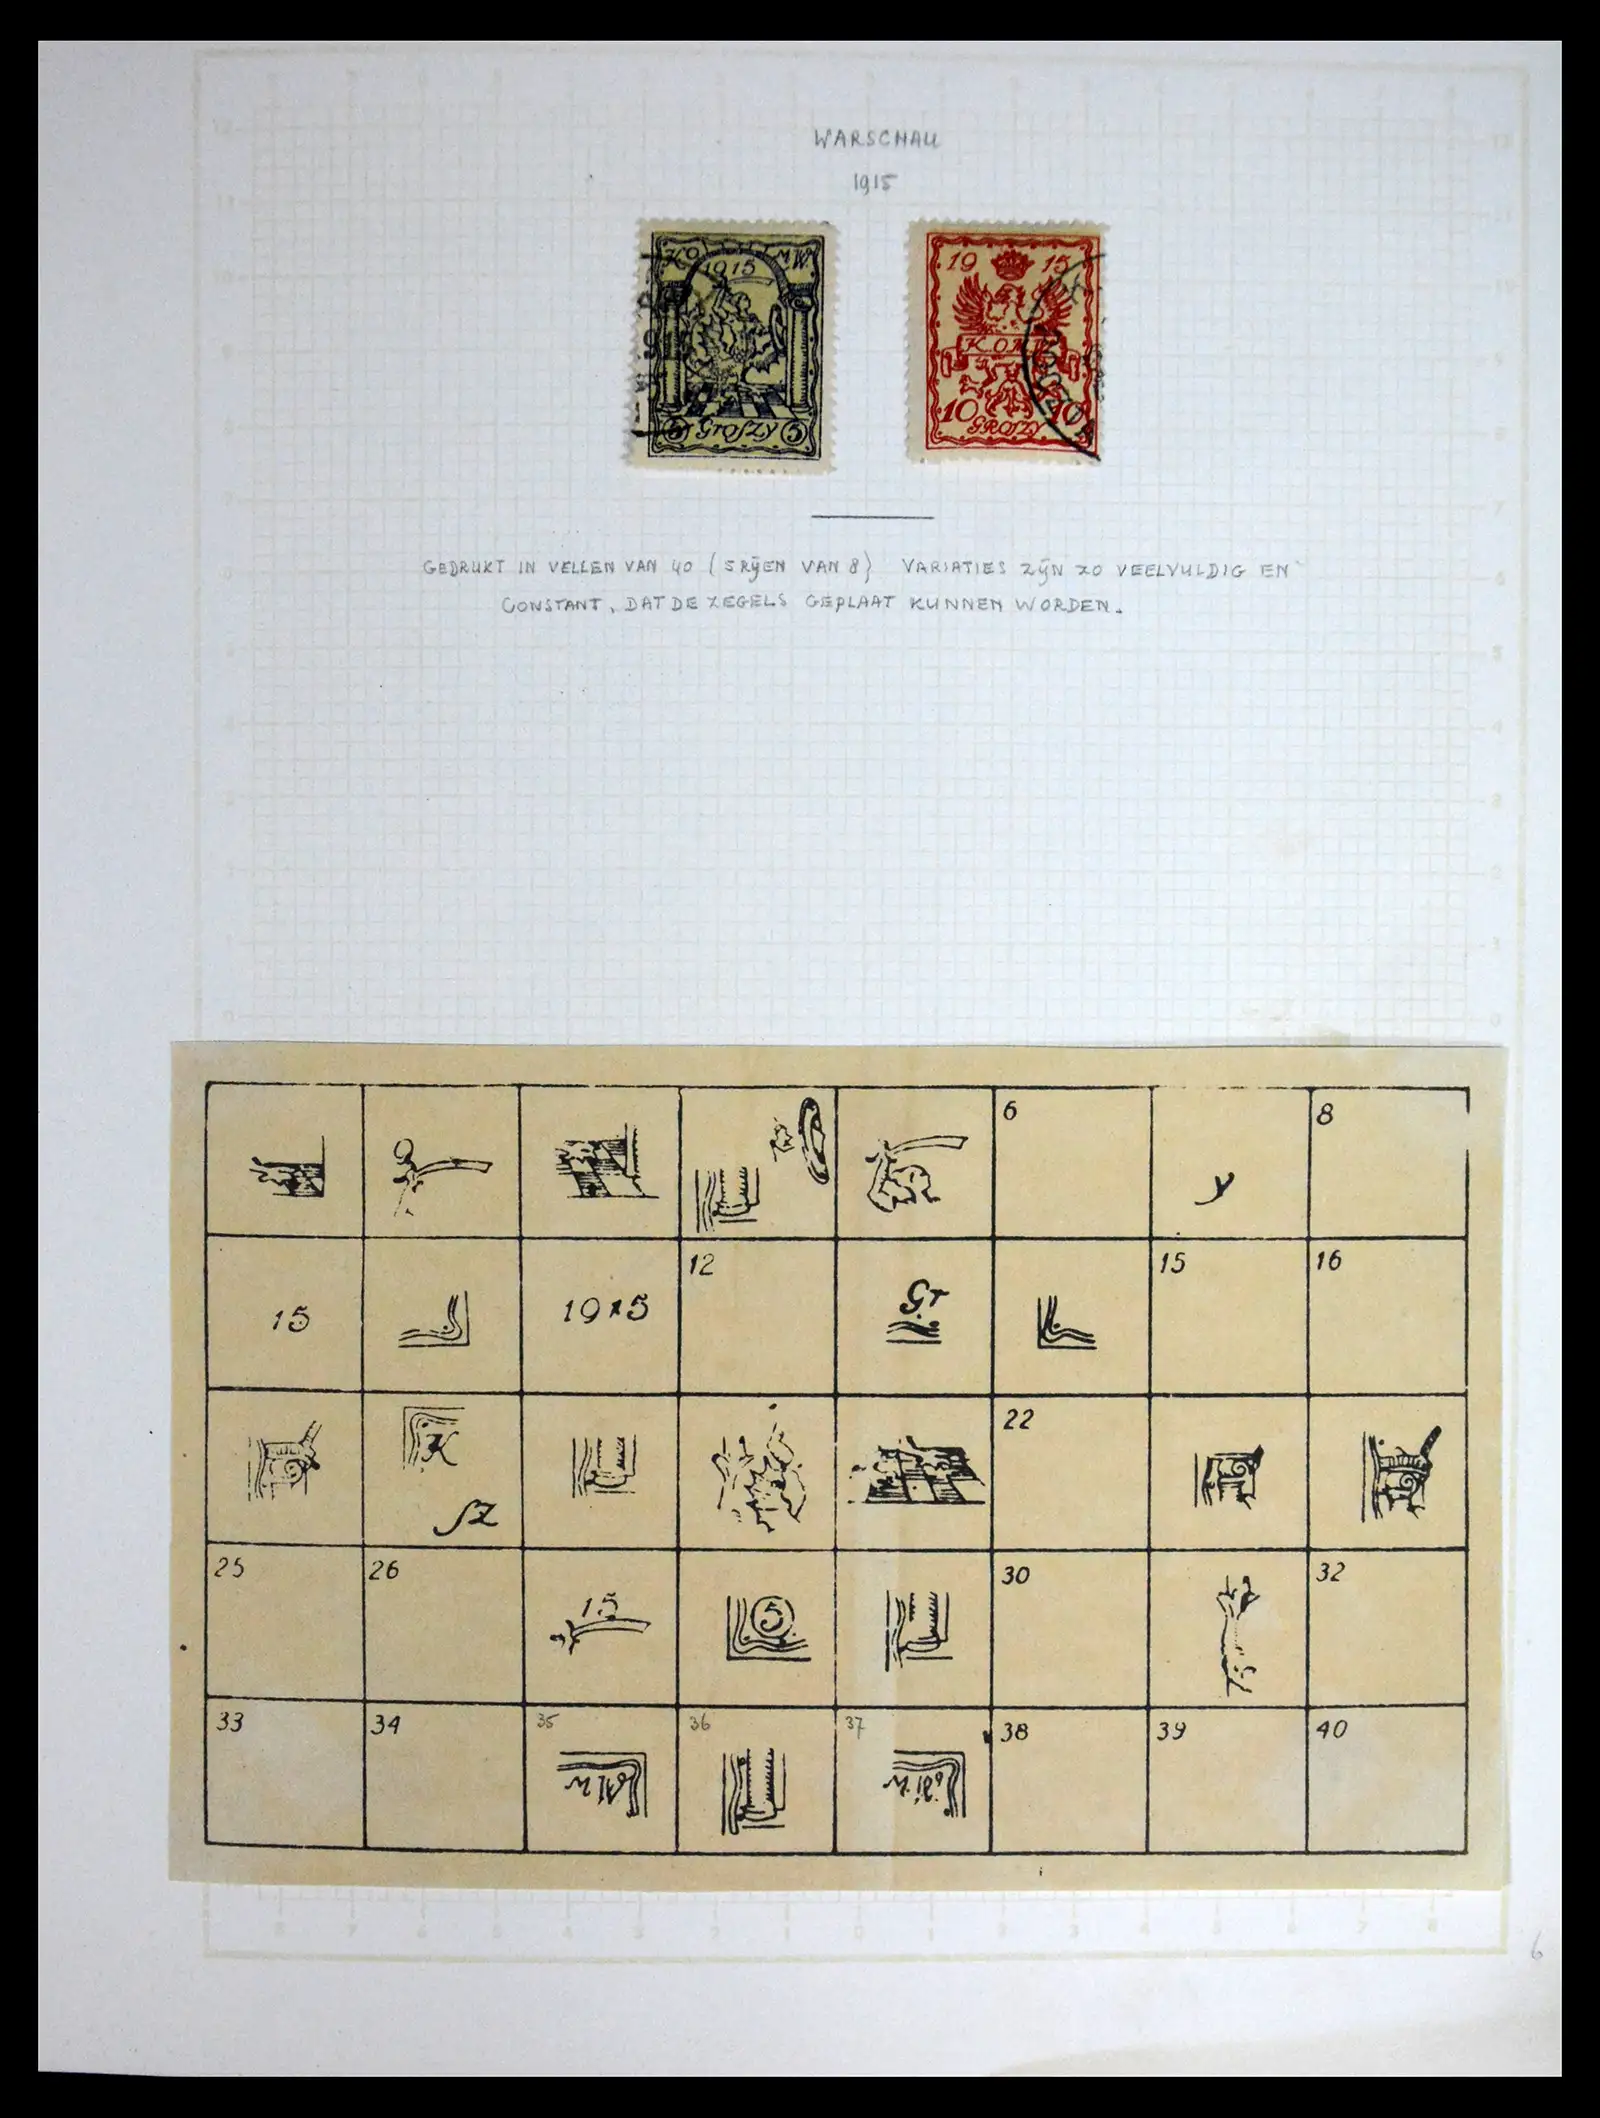 WARSCHAU
1915
KO MW.
1915
5 GroSZY 5
19 15
K.O.M.W
10 10
GROSZY
GEDRUKT IN VELLEN VAN 40 (5 RIJEN VAN 8) VARIATIES ZIJN ZO VEELVULDIG EN
CONSTANT, DAT DE ZEGELS GEPLAAT KUNNEN WORDEN.
6 8
y
12 15 16
15 1915 Gr
22
K
SZ
25 26 30 32
15 5
33 34 35 36 37 38 39 40
6